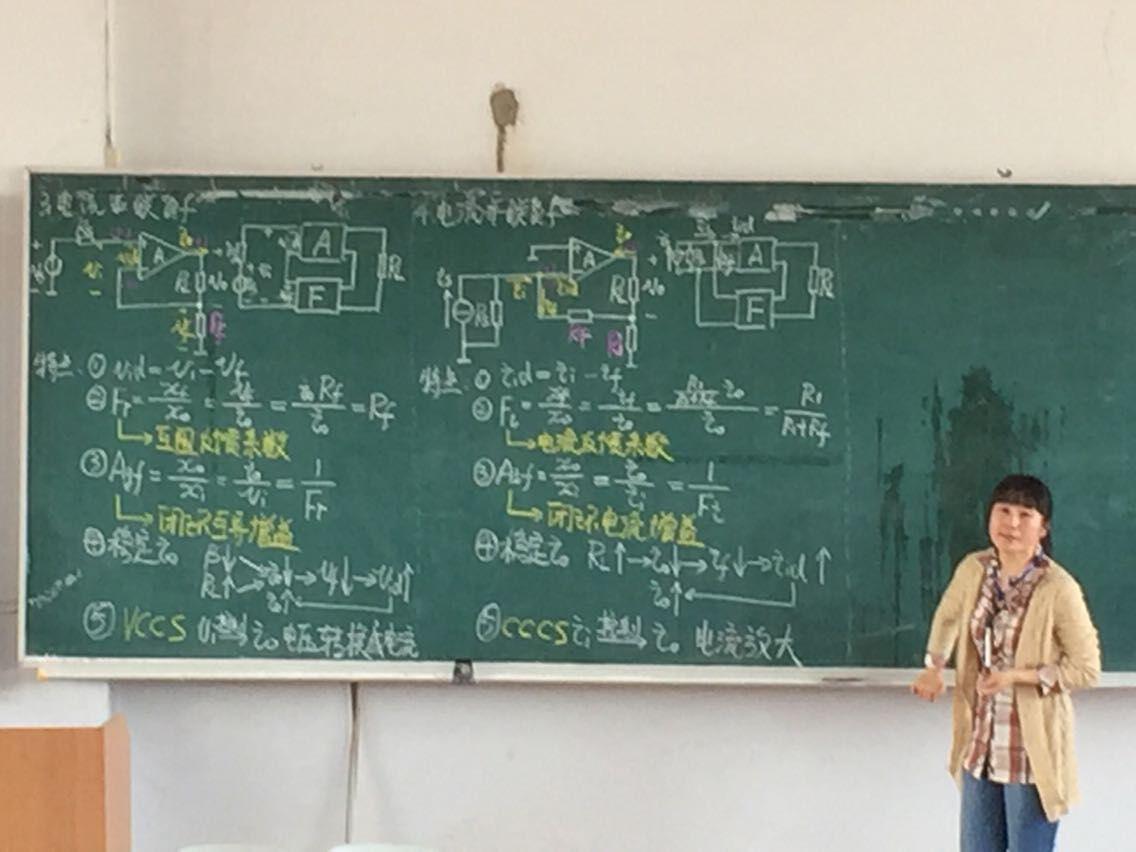 3. 电流串联负f
A
R_L
v_o
R_f
A
F
R_L
特点: ① v_id = v_i - v_f
② F_r = x_f/x_o = v_f/i_o = i_o R_f/i_o = R_f
互阻反馈系数
③ A_gf = x_o/x_i = i_o/v_i = 1/F_r
闭环互导增益
④ 稳定 i_o
β↓ R_L↑ → i_o↓ → v_f↓ → v_id↑
i_o↑
⑤ VCCS v_i 控制→ i_o 电压转换成电流
4. 电流并联负f
i_s
R_s
A
R_L
v_o
R_f
A
F
R_L
特点: ① i_id = i_i - i_f
② F_i = x_f/x_o = i_f/i_o = = R_1/(R_1+R_f)
电流反馈系数
③ A_if = x_o/x_i = i_o/i_i = 1/F_i
闭环电流增益
④ 稳定 i_o R_L↑ → i_o↓ → i_f↓ → i_id↑
i_o↑
⑤ CCCS i_i 控制→ i_o 电流放大